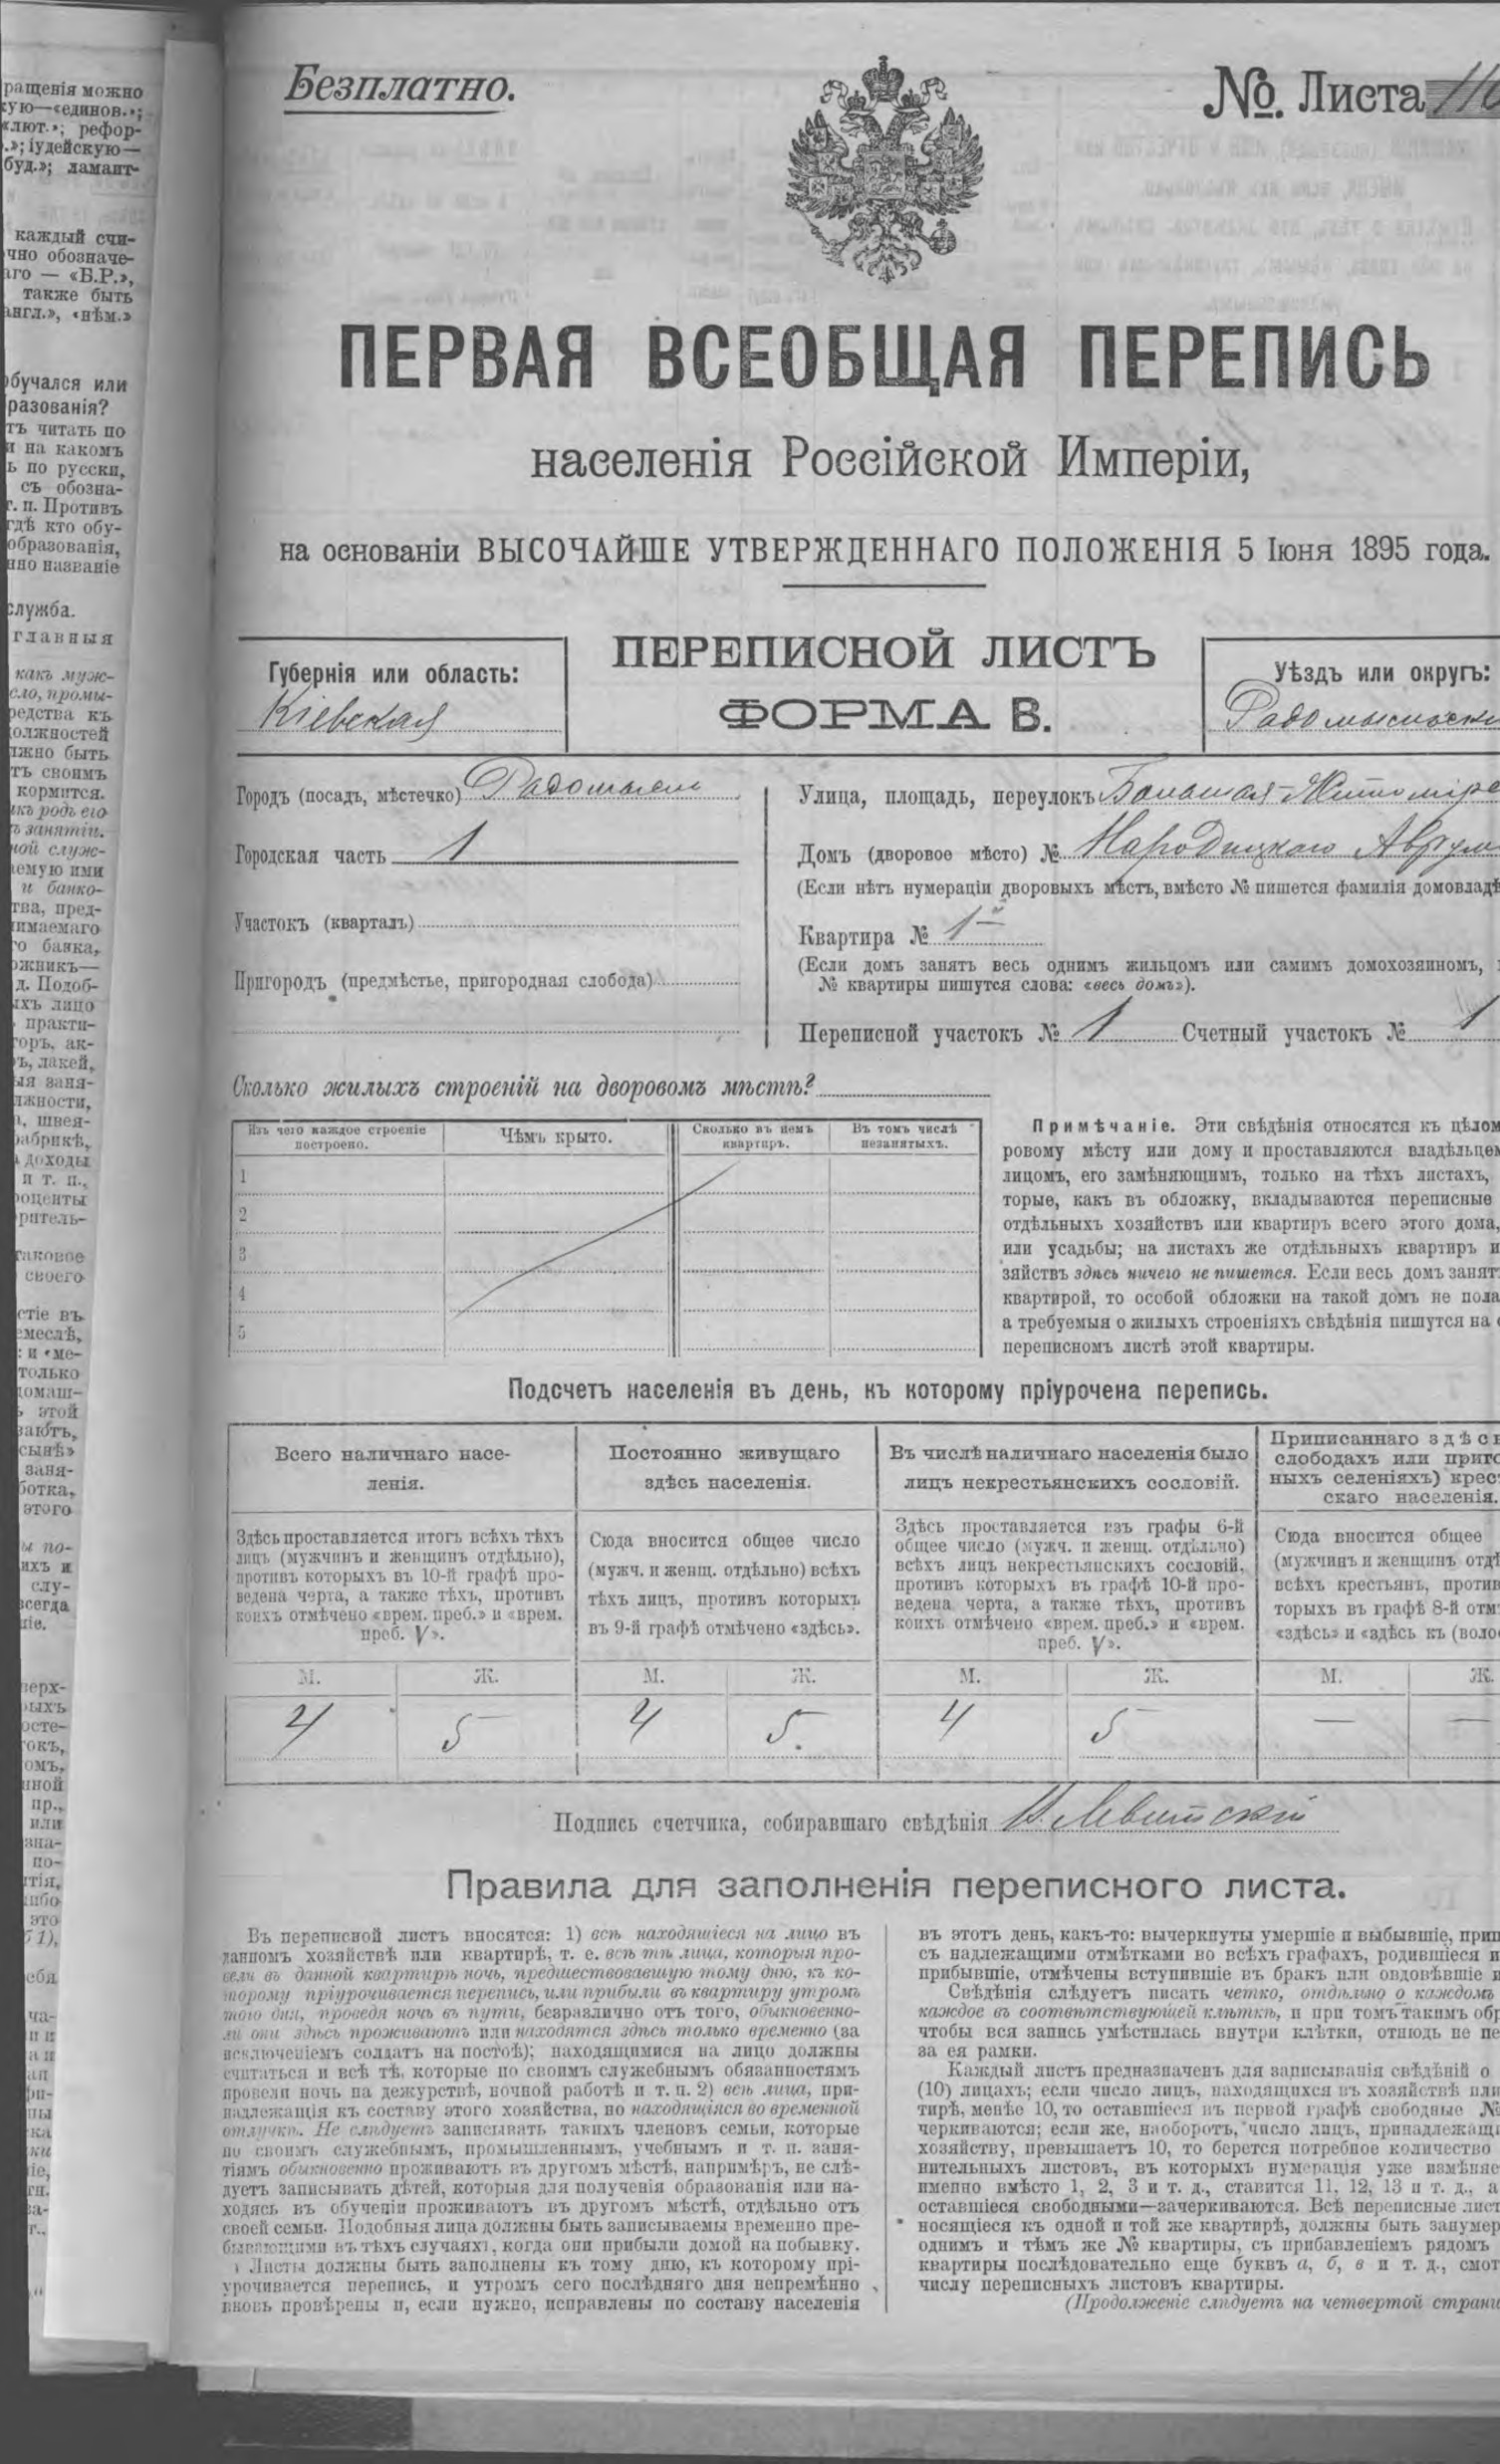 ращенія можно
ую—«единов.»;
«лют.»; рефор-
.»; іудейскую—
буд.»; ламант-
каждый счи-
чно обозначе-
аго — «Б.Р.»,
также быть
англ.», «нѣм.»
обучался или
разованія?
тъ читать по
и на какомъ
ь по русски,
съ обозна-
г. п. Противъ
гдѣ кто обу-
образованія,
нно названіе
служба.
главныя
какъ муж-
сло, промы-
редства къ
олжностей
лжно быть
тъ своимъ
кормится.
къ родъ его
ъ занятіи.
ной служ-
емую ими
и банко-
тва, пред-
имаемаго
о банка,
ожникъ—
д. Подоб-
ыхъ лицо
практи-
оръ, ак-
ъ, лакей,
ія заня-
лжности,
, швея-
абрикѣ,
доходы
и т. п.,
оценты
рптель-
таковое
своего
стіе въ
емеслѣ,
: и «ме-
только
омаш-
этой
ваютъ,
сынѣ»
заня-
ботка,
этого
Безплатно.
№. Листа 110
ПЕРВАЯ ВСЕОБЩАЯ ПЕРЕПИСЬ
населенія Россійской Имперіи,
на основаніи ВЫСОЧАЙШЕ УТВЕРЖДЕННАГО ПОЛОЖЕНІЯ 5 Іюня 1895 года.
ПЕРЕПИСНОЙ ЛИСТЪ
ФОРМА В.
Губернія или область:
Кіевская
Уѣздъ или округъ:
Радомысльски
Городъ (посадъ, мѣстечко) Радомысль
Городская часть 1
Участокъ (кварталъ)
Пригородъ (предмѣстье, пригородная слобода)
Улица, площадь, переулокъ Большая-Житомірс
Домъ (дворовое мѣсто) № Народицкаго Аврум
(Если нѣтъ нумераціи дворовыхъ мѣстъ, вмѣсто № пишется фамилія домовладѣ
Квартира № 1
(Если домъ занятъ весь однимъ жильцомъ или самимъ домохозяиномъ,
№ квартиры пишутся слова: «весь домъ»).
Переписной участокъ № 1 Счетный участокъ № 1
Сколько жилыхъ строеній на дворовомъ мѣстѣ?
Изъ чего каждое строеніе построено.
Чѣмъ крыто.
Сколько въ немъ квартиръ.
Въ томъ числѣ незанятыхъ.
1
2
3
4
5
Примѣчаніе. Эти свѣдѣнія относятся къ цѣлом
ровому мѣсту или дому и проставляются владѣльцем
лицомъ, его замѣняющимъ, только на тѣхъ листахъ,
торые, какъ въ обложку, вкладываются переписные
отдѣльныхъ хозяйствъ или квартиръ всего этого дома,
или усадьбы; на листахъ же отдѣльныхъ квартиръ и
зяйствъ здѣсь ничего не пишется. Если весь домъ занят
квартирой, то особой обложки на такой домъ не пола
а требуемыя о жилыхъ строеніяхъ свѣдѣнія пишутся на
переписномъ листѣ этой квартиры.
Подсчетъ населенія въ день, къ которому пріурочена перепись.
Всего наличнаго насе-
ленія.
Постоянно живущаго
здѣсь населенія.
Въ числѣ наличнаго населенія было
лицъ некрестьянскихъ сословій.
Приписаннаго здѣс
слободахъ или приго
ныхъ селеніяхъ) крес
скаго населенія.
Здѣсь проставляется итогъ всѣхъ тѣхъ
лицъ (мужчинъ и женщинъ отдѣльно),
противъ которыхъ въ 10-й графѣ про-
ведена черта, а также тѣхъ, противъ
коихъ отмѣчено «врем. преб.» и «врем.
преб. V».
Сюда вносится общее число
(мужч. и женщ. отдѣльно) всѣхъ
тѣхъ лицъ, противъ которыхъ
въ 9-й графѣ отмѣчено «здѣсь».
Здѣсь проставляется изъ графы 6-й
общее число (мужч. и женщ. отдѣльно)
всѣхъ лицъ некрестьянскихъ сословій,
противъ которыхъ въ графѣ 10-й про-
ведена черта, а также тѣхъ, противъ
коихъ отмѣчено «врем. преб.» и «врем.
преб. V».
Сюда вносится общее
(мужчинъ и женщинъ отдѣ
всѣхъ крестьянъ, против
торыхъ въ графѣ 8-й отм
«здѣсь» и «здѣсь къ (воло
М. Ж. М. Ж. М. Ж. М. Ж.
4 5 4 5. 4 5 — —
Подпись счетчика, собиравшаго свѣдѣнія Н. Левитскій
Правила для заполненія переписного листа.
Въ переписной листъ вносятся: 1) всѣ находящіеся на лицо въ
данномъ хозяйствѣ или квартирѣ, т. е. всѣ тѣ лица, которыя про-
вели въ данной квартирѣ ночь, предшествовавшую тому дню, къ ко-
торому пріурочивается перепись, или прибыли въ квартиру утромъ
того дня, проведя ночь въ пути, безразлично отъ того, обыкновенно-
ли они здѣсь проживаютъ или находятся здѣсь только временно (за
исключеніемъ солдатъ на постоѣ); находящимися на лицо должны
считаться и всѣ тѣ, которые по своимъ служебнымъ обязанностямъ
провели ночь на дежурствѣ, ночной работѣ и т. п. 2) всѣ лица, при-
надлежащія къ составу этого хозяйства, но находящіяся во временной
отлучкѣ. Не слѣдуетъ записывать такихъ членовъ семьи, которые
по своимъ служебнымъ, промышленнымъ, учебнымъ и т. п. заня-
тіямъ обыкновенно проживаютъ въ другомъ мѣстѣ, напримѣръ, не слѣ-
дуетъ записывать дѣтей, которыя для полученія образованія или на-
ходясь въ обученіи проживаютъ въ другомъ мѣстѣ, отдѣльно отъ
своей семьи. Подобныя лица должны быть записываемы временно пре-
бывающими въ тѣхъ случаяхъ, когда они прибыли домой на побывку.
Листы должны быть заполнены къ тому дню, къ которому прі-
урочивается перепись, и утромъ сего послѣдняго дня непремѣнно
вновь провѣрены и, если нужно, исправлены по составу населенія
въ этотъ день, какъ-то: вычеркнуты умершіе и выбывшіе, прип
съ надлежащими отмѣтками во всѣхъ графахъ, родившіеся и
прибывшіе, отмѣчены вступившіе въ бракъ или овдовѣвшіе и
Свѣдѣнія слѣдуетъ писать четко, отдѣльно о каждомъ
каждое въ соотвѣтствующей клѣткѣ, и при томъ такимъ обр
чтобы вся запись умѣстилась внутри клѣтки, отнюдь не пе
за ея рамки.
Каждый листъ предназначенъ для записыванія свѣдѣній о
(10) лицахъ; если число лицъ, находящихся въ хозяйствѣ или
тирѣ, менѣе 10, то оставшіеся въ первой графѣ свободные №
черкиваются; если же, наоборотъ, число лицъ, принадлежащи
хозяйству, превышаетъ 10, то берется потребное количество
нительныхъ листовъ, въ которыхъ нумерація уже измѣняе
именно вмѣсто 1, 2, 3 и т. д., ставится 11, 12, 13 и т. д., а
оставшіеся свободными—зачеркиваются. Всѣ переписные лист
носящіеся къ одной и той же квартирѣ, должны быть занумер
однимъ и тѣмъ же № квартиры, съ прибавленіемъ рядомъ
квартиры послѣдовательно еще буквъ а, б, в и т. д., смот
числу переписныхъ листовъ квартиры.
(Продолженіе слѣдуетъ на четвертой страни